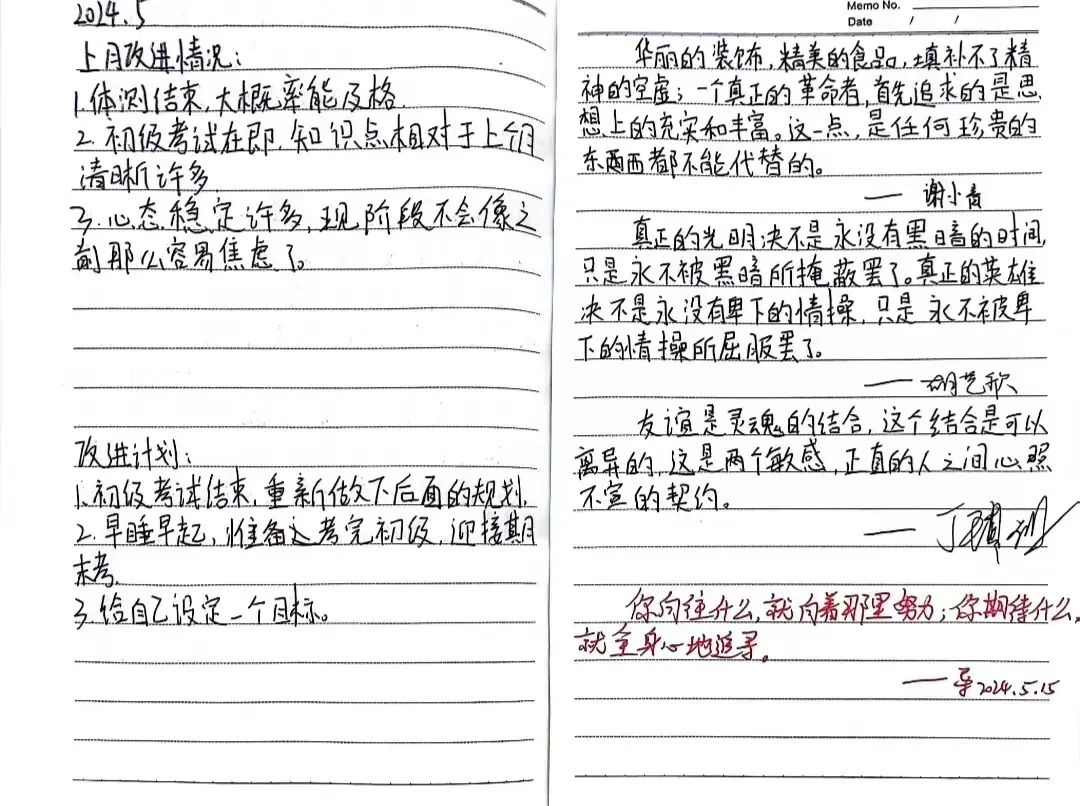 2024.5
上月改进情况：
1.体测结束,大概率能及格
2.初级考试在即,知识点相对于上个月
清晰许多
3.心态稳定许多,现阶段不会像之
前那么容易焦虑了。
改进计划：
1.初级考试结束,重新做下后面的规划.
2.早睡早起,准备考完初级,迎接期
末考.
3.给自己设定一个目标。
Memo No.
Date / /
华丽的装饰,精美的食品,填补不了精
神的空虚；一个真正的革命者,首先追求的是思
想上的充实和丰富。这一点,是任何珍贵的
东西都不能代替的。
—— 谢小青
真正的光明决不是永没有黑暗的时间,
只是永不被黑暗所掩蔽罢了。真正的英雄
决不是永没有卑下的情操,只是永不被卑
下的情操所屈服罢了。
—— 胡艺欣
友谊是灵魂的结合,这个结合是可以
离异的,这是两个敏感,正直的人之间心照
不宣的契约。
—— 丁
你向往什么,就向着那里努力；你期待什么,
就全身心地追寻。
—— 2024.5.15